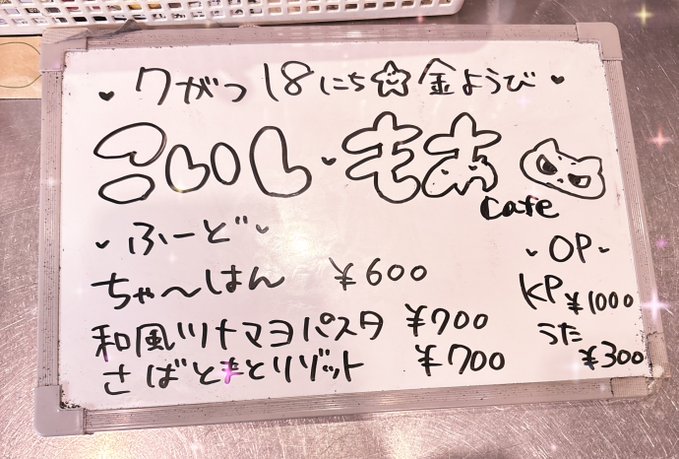 7がつ18にち☆金ようび
こいし♥もあ
cafe
ふーど
ちゃ〜はん ¥600
和風ツナマヨパスタ ¥700
さばとまとリゾット ¥700
OP
KP ¥1000
うた
¥300